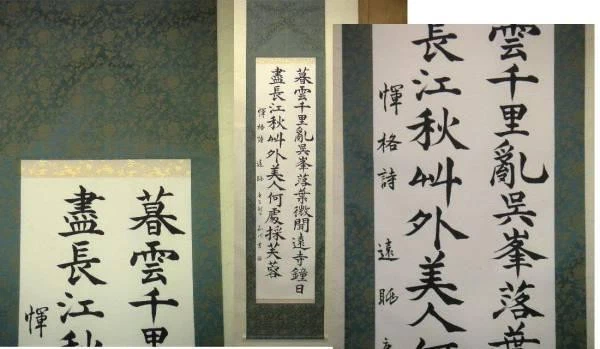 暮雲千里
盡長江秋
惲
暮雲千里亂吳峯落葉微聞遠寺鐘日
盡長江秋艸外美人何處採芙蓉
惲格詩 遠眺
雲千里亂吳峯落葉
長江秋艸外美人何
惲格詩 遠眺